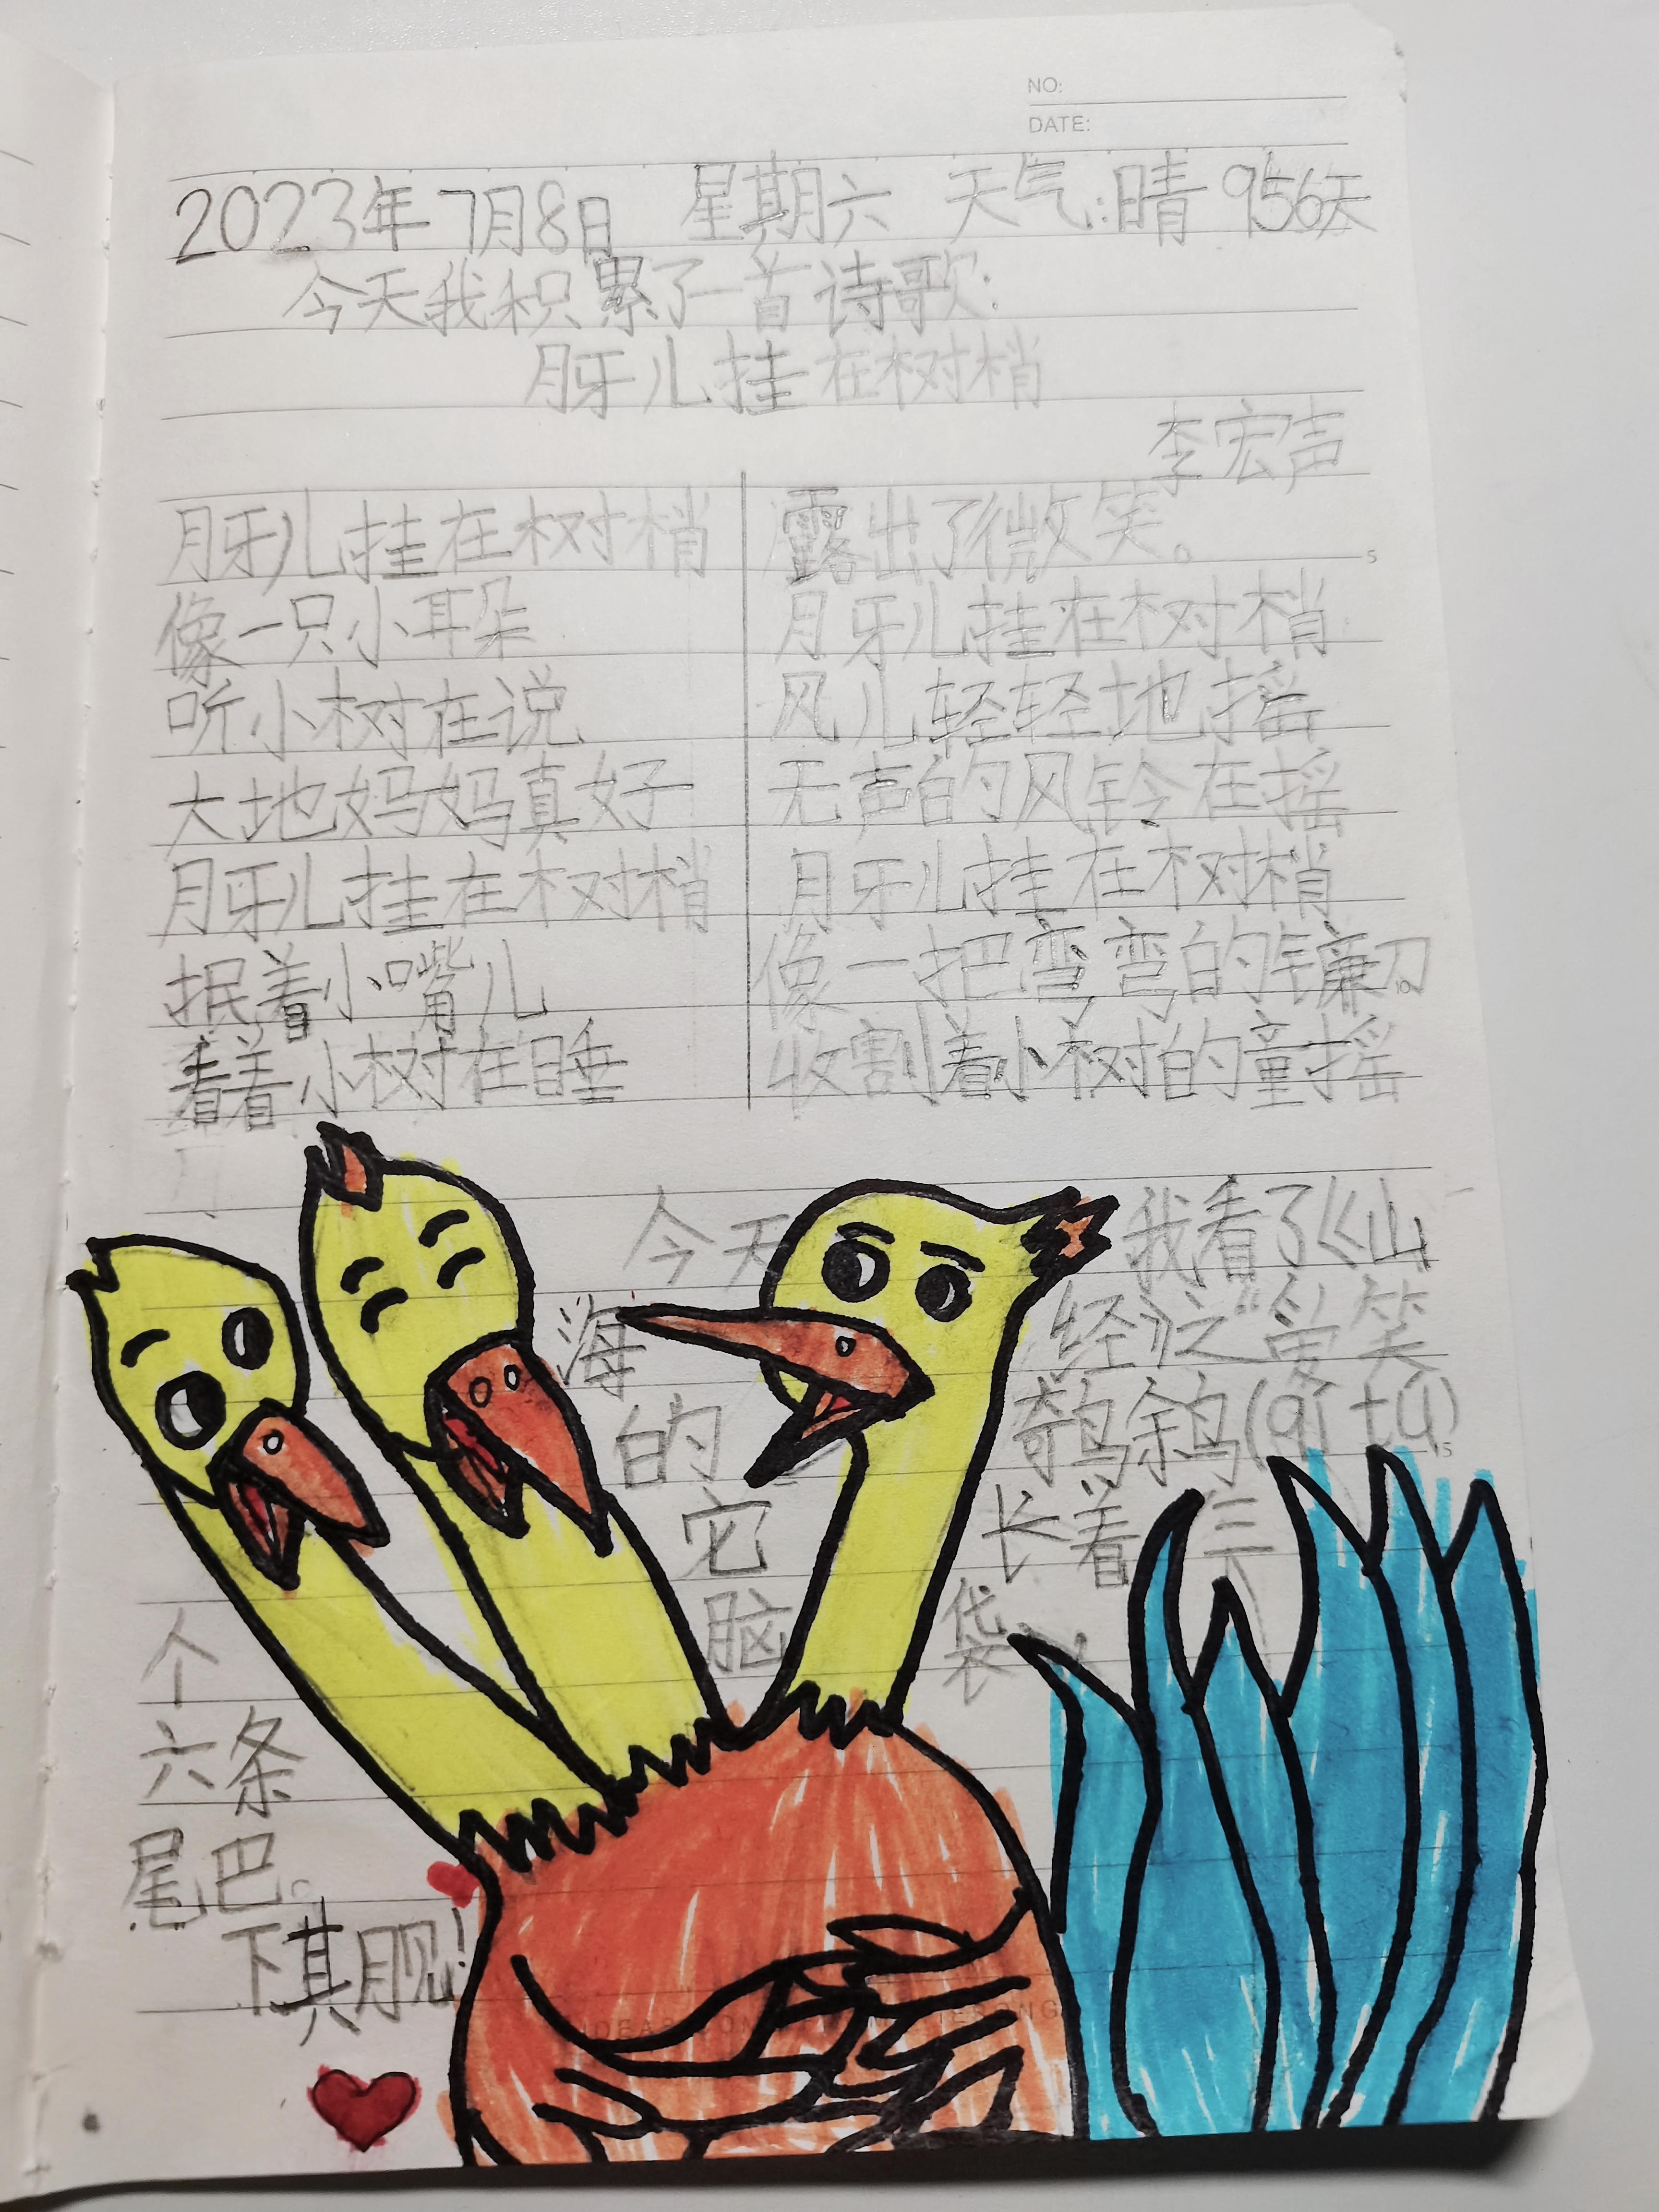 NO:
DATE:
2023年7月8日 星期六 天气:晴 956天
今天我积累了一首诗歌:
月牙儿挂在树梢
李宏声
月牙儿挂在树梢
像一只小耳朵
听小树在说
大地妈妈真好
月牙儿挂在树梢
抿着小嘴儿
看着小树在睡
露出了微笑。
月牙儿挂在树梢
风儿轻轻地摇
无声的风铃在摇
月牙儿挂在树梢
像一把弯弯的镰刀
收割着小树的童摇
今天我看了《山
海经》之“爱笑
的鵸鵌(qí tú)
它长着三
个脑袋、
六条
尾巴。
下期见!